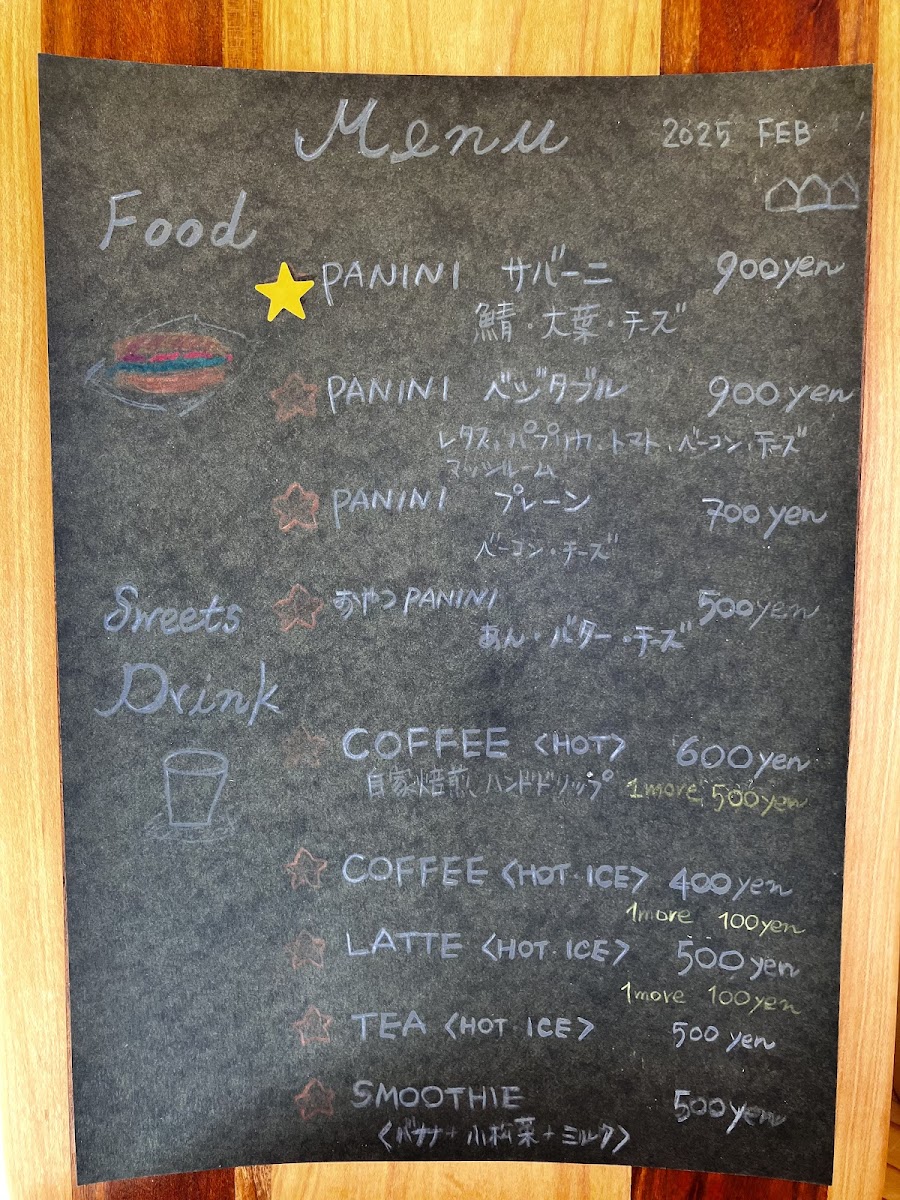 Menu 2025 FEB
Food
PANINI サバーニ 900yen
鯖・大葉・チーズ
PANINI ベジタブル 900yen
レタス、パプリカ、トマト、ベーコン、チーズ
マッシュルーム
PANINI プレーン 700yen
ベーコン・チーズ
Sweets
おやつPANINI 500yen
あん・バター・チーズ
Drink
COFFEE <HOT> 600yen
自家焙煎、ハンドドリップ 1more 500yen
COFFEE <HOT・ICE> 400yen
1more 100yen
LATTE <HOT・ICE> 500yen
1more 100yen
TEA <HOT・ICE> 500yen
SMOOTHIE 500yen
<バナナ+小松菜+ミルク>